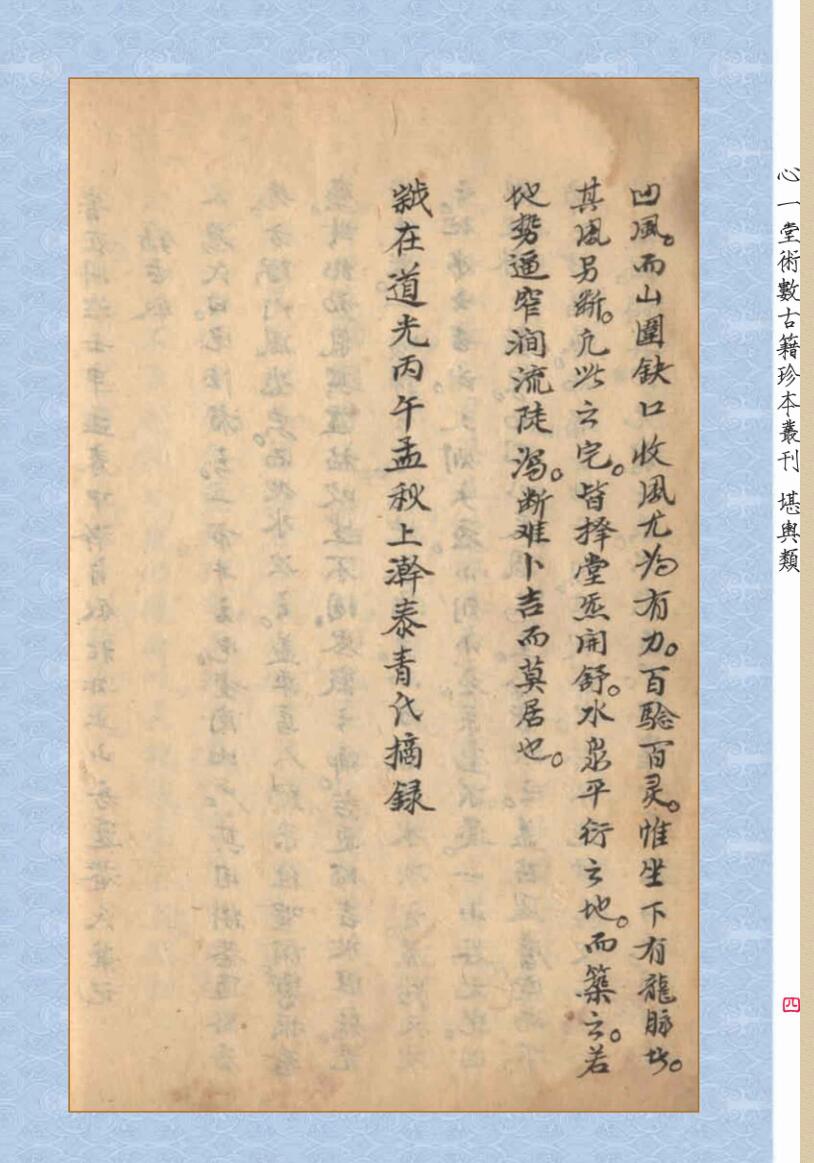 凹風。而山圍鈌口收風尤为有力。百騐百灵。惟坐下有龍脈
其風另斷。凢此云宅。皆擇堂炁開舒。水泉平衍云地。而築云。若
地勢逼窄澗流陡瀉。断难卜吉而莫居也。
在道光丙午孟秋上澣泰青氏摘録
心一堂術數古籍珍本叢刊 堪輿類
四